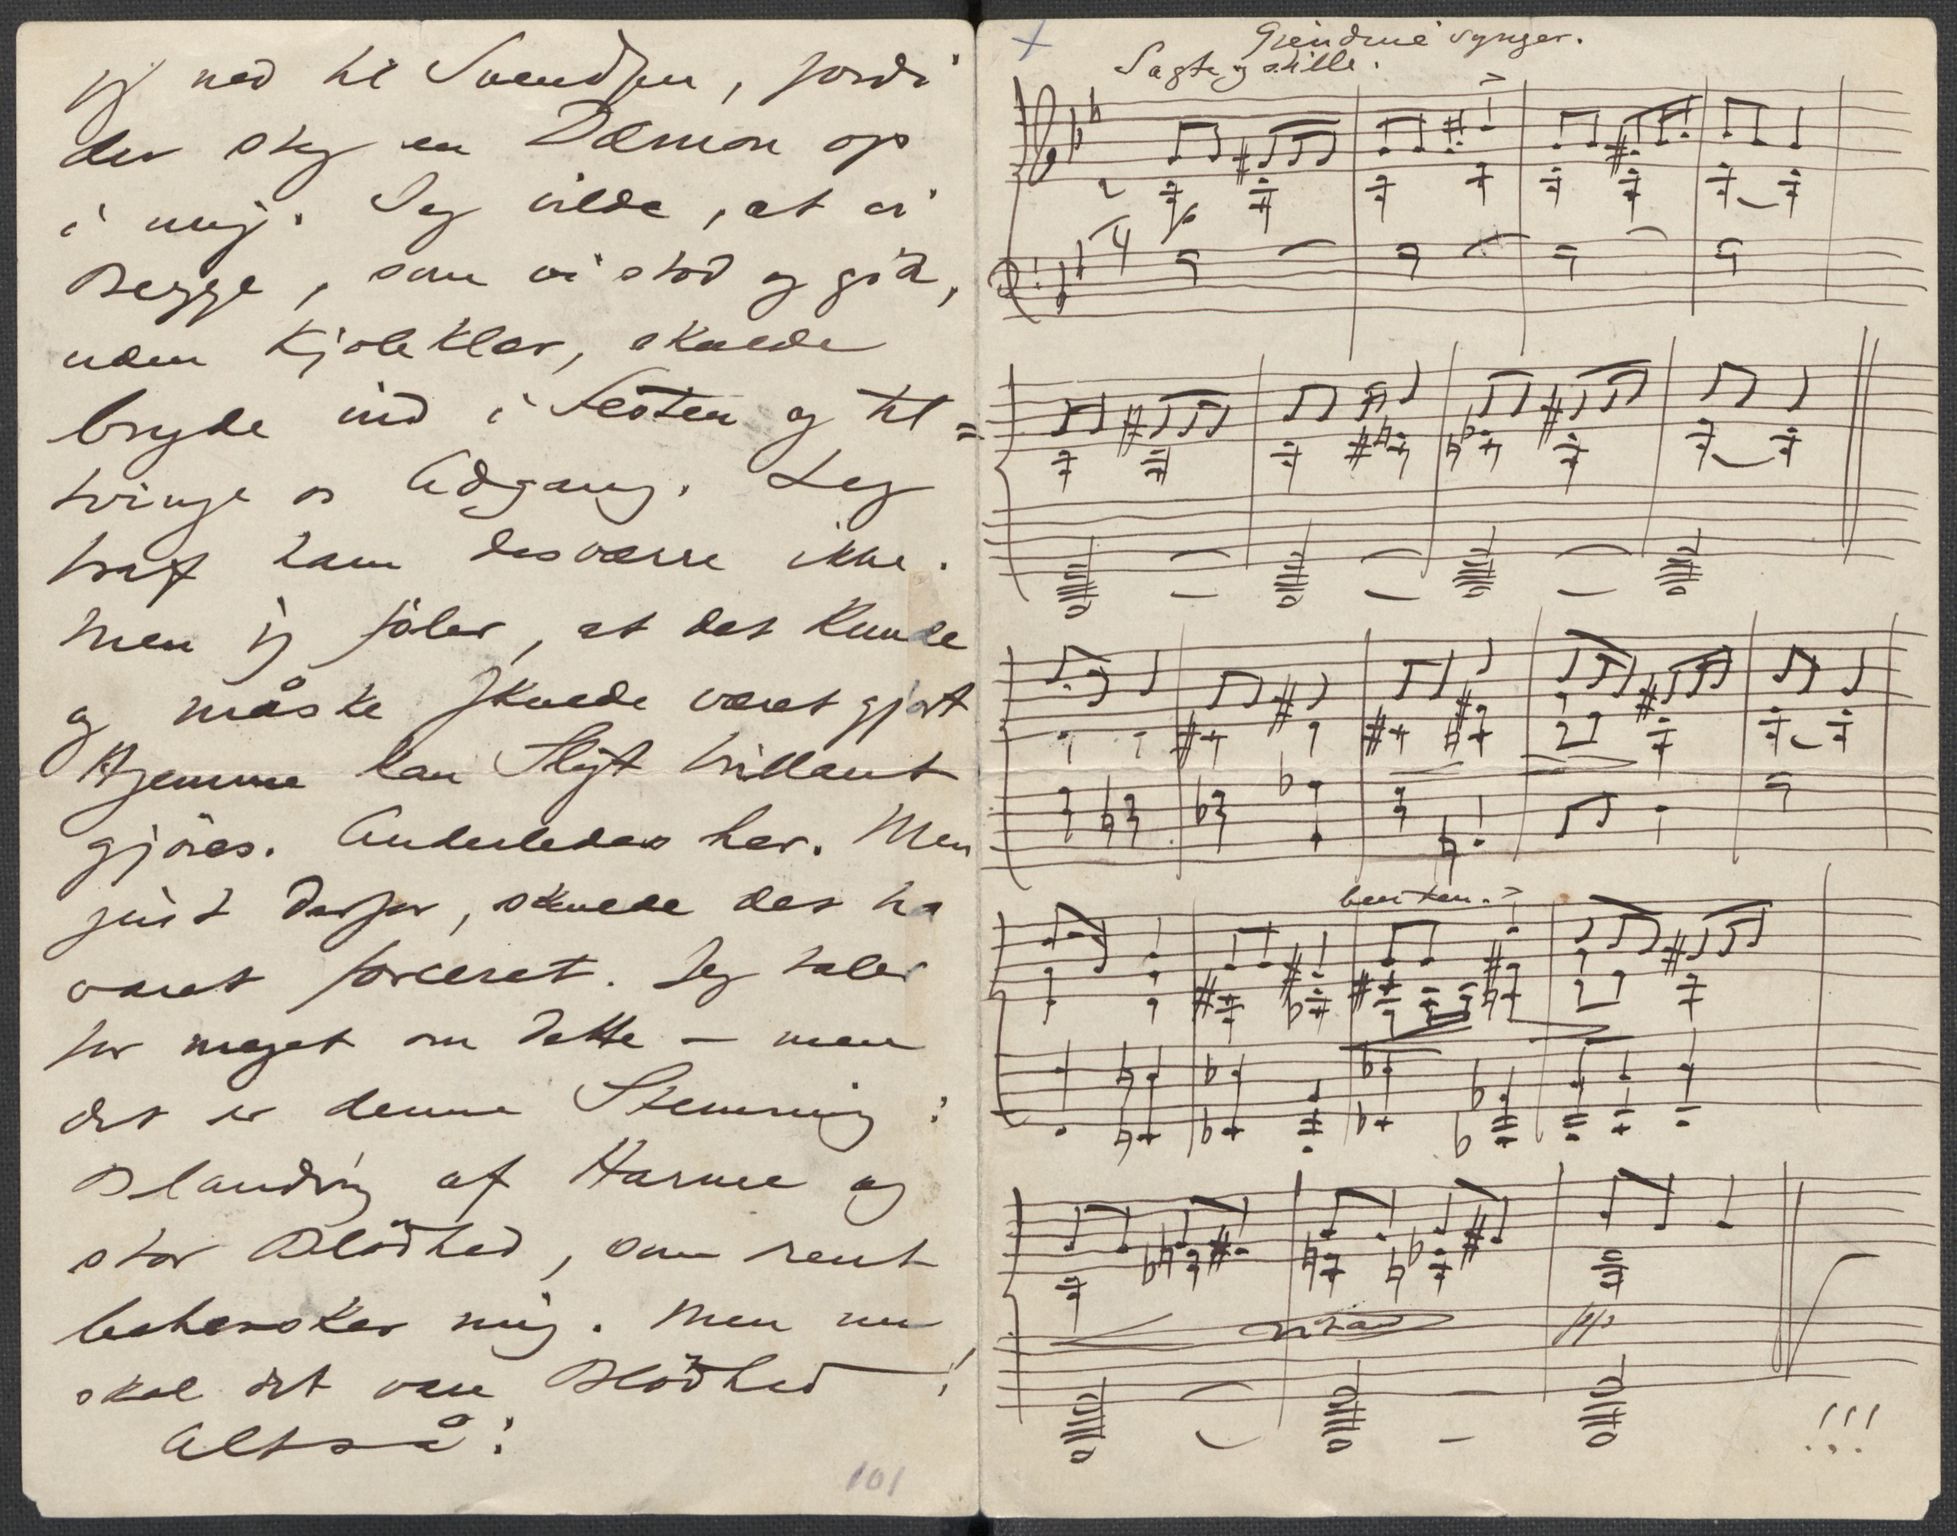 jeg ned til Svendsen, fordi
der steg en Dæmon op
i mig. Jeg vilde, at vi
Begge, som vi stod og gik,
uden Kjoleklær, skulde
bryde ind i Festen og til=
tvinge os Adgang. Jeg
traf ham desværre ikke.
Men jeg föler, at det kunde
og måske skulde været gjort
Hjemme kan Sligt brillant
gjöres. Anderledes her. Men
just derfor, skulde det ha
været forceret. Jeg taler
for meget om dette – men
det er denne Stemning:
Blanding af Harme og
stor Blödhed, som rent
behersker mig. Men nu
skal det være Blödhed!
Altså:
101
Gjendine synger.
Sagte og stille.
ben ten.
ritard
ppp
!!!